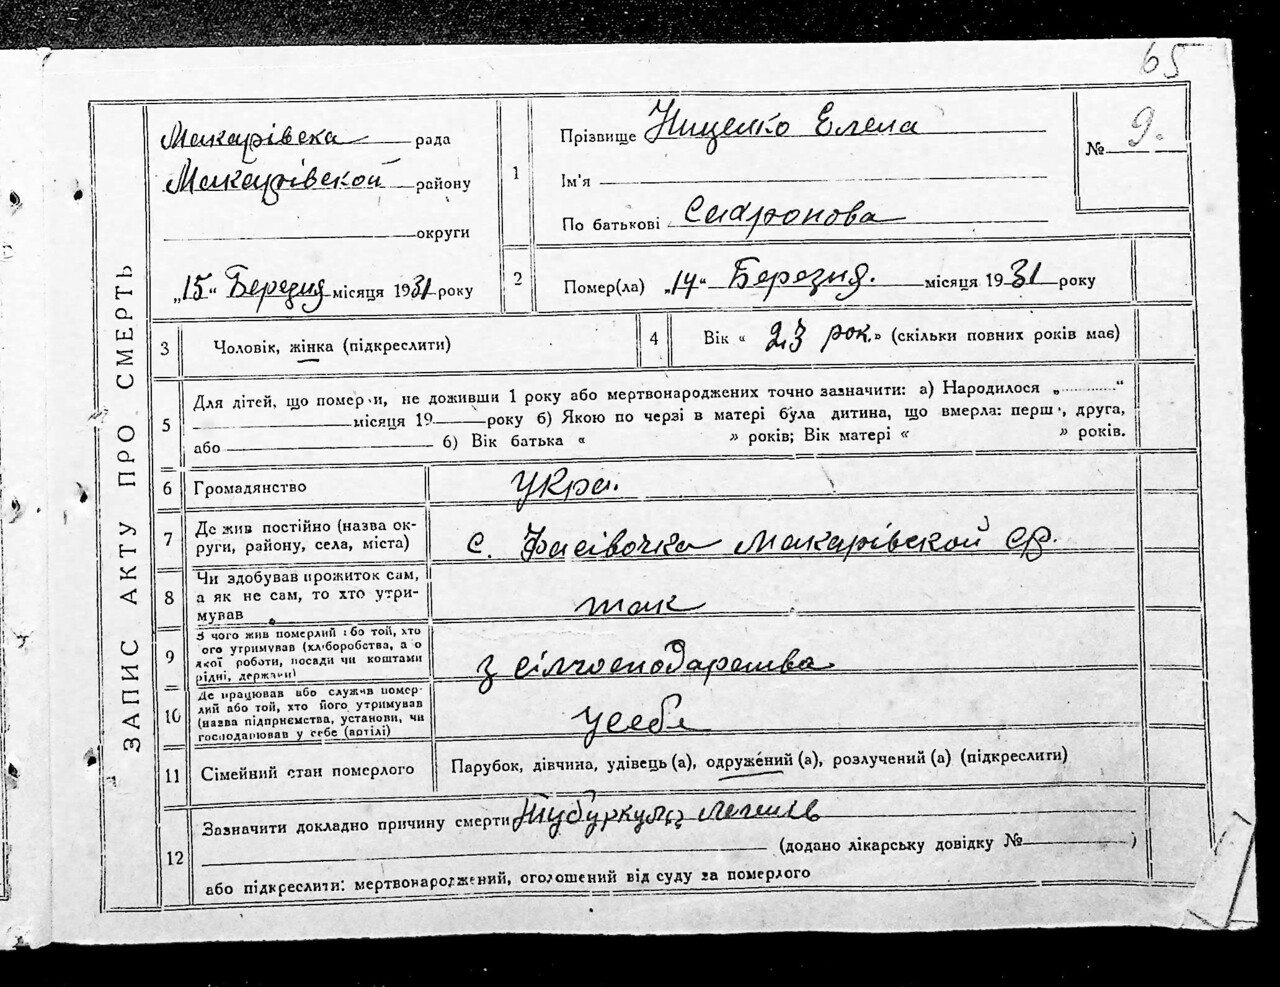 65
ЗАПИС АКТУ ПРО СМЕРТЬ
Макарівска рада
Макарівской району
округи
„15“ Березня місяця 1931 року
1
Прізвище Нищенко Елена
Ім'я
По батькові Сафронова
№ 9.
2
Помер(ла) „14“ Березня. місяця 1931 року
3
Чоловік, жінка (підкреслити)
4
Вік « 23 рок.» (скільки повних років має)
5
Для дітей, що померли, не доживши 1 року або мертвонароджених точно зазначити: а) Народилося „ “
місяця 19 року б) Якою по черзі в матері була дитина, що вмерла: перша, друга,
або б) Вік батька « » років; Вік матері « » років.
6
Громадянство
укра.
7
Де жив постійно (назва ок-
руги, району, села, міста)
с. Фасівочка Макарівской ср.
8
Чи здобував прожиток сам,
а як не сам, то хто утри-
мував
так
9
З чого жив померлий або той, хто
його утримував (хліборобства, а о
якої роботи, посади чи коштами
рідні, держави)
з сілгосподарства
10
Де працював або служив помер-
лий або той, хто його утримував
(назва підприємства, установи, чи
господарював у себе (артілі)
усебе
11
Сімейний стан померлого
Парубок, дівчина, удівець (а), одружений (а), розлучений (а) (підкреслити)
12
Зазначити докладно причину смерти Тубуркульз легнів
(додано лікарську довідку № )
або підкреслити: мертвонароджений, оголошений від суду за померлого